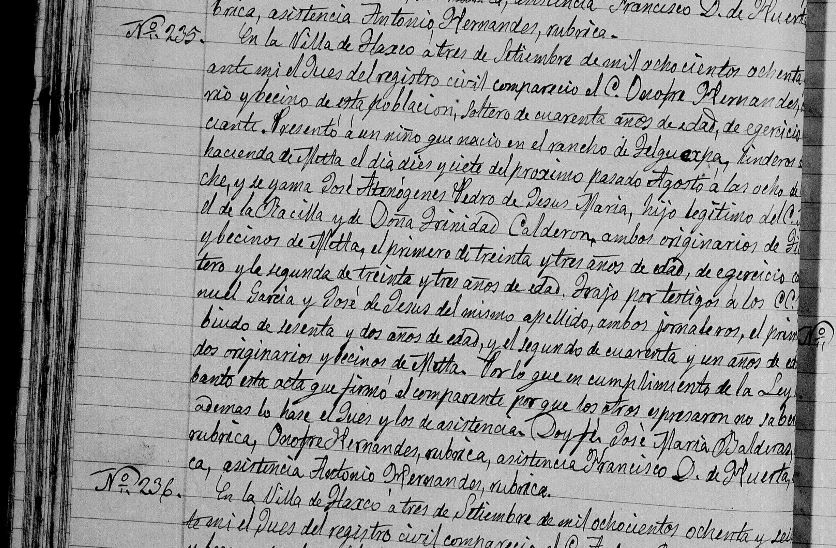 brica, asistencia Antonio Hernandes, rubrica.
No. 235. En la Villa de Tlaxco á tres de Setiembre de mil ochocientos ochenta
ante mi el Jues del registro civil comparecio el C. Onofre Hernandes,
rio y becino de esta poblacion, soltero de cuarenta años de edad, de egercicio
ciante. Presentó á un niño que nacio en el rancho de linderos
hacienda de Mitla el dia dies y siete del proximo pasado Agosto á las ocho de
che, y se yama José Atenógenes Pedro de Jesus Maria, hijo legitimo del C.
el de la Racilla y de Doña Trinidad Calderon, ambos originarios de
y becinos de Mitla, el primero de treinta y tres años de edad, de egercicio
tero y la segunda de treinta y tres años de edad. Trajo por testigos á los CC.
nuel Garcia y José de Jesus del mismo apellido, ambos jornaleros, el prim
biudo de sesenta y dos años de edad, y el segundo de cuarenta y un años de
dos originarios y becinos de Mitla. Por lo que en cumplimiento de la Ley
banto esta acta que firmó el comparente por que los otros espresaron no saber
ademas lo hase el Jues y los de asistencia. Doy fé. José Maria Balderas,
rubrica, Onofre Hernandes, rubrica, asistencia Francisco D. de Huerta,
ca, asistencia Antonio Hernandes, rubrica.
No. 236. En la Villa de Tlaxco á tres de Setiembre de mil ochocientos ochenta y sei
te mi el Jues del registro civil comparecio el C.